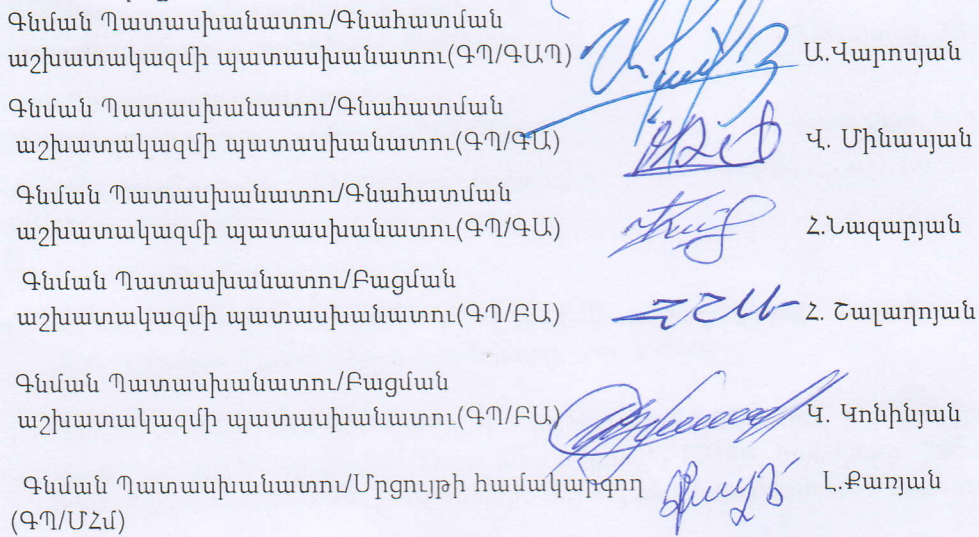 Գնման Պատասխանատու/Գնահատման
աշխատակազմի պատասխանատու(ԳՊ/ԳԱՊ) Ա.Վարոսյան
Գնման Պատասխանատու/Գնահատման
աշխատակազմի պատասխանատու(ԳՊ/ԳԱ) Վ. Մինասյան
Գնման Պատասխանատու/Գնահատման
աշխատակազմի պատասխանատու(ԳՊ/ԳԱ) Հ.Նազարյան
Գնման Պատասխանատու/Բացման
աշխատակազմի պատասխանատու(ԳՊ/ԲԱ) Հ. Շալաղոյան
Գնման Պատասխանատու/Բացման
աշխատակազմի պատասխանատու(ԳՊ/ԲԱ) Կ. Կոնինյան
Գնման Պատասխանատու/Մրցույթի համակարգող Լ.Քառյան
(ԳՊ/ՄՀմ)